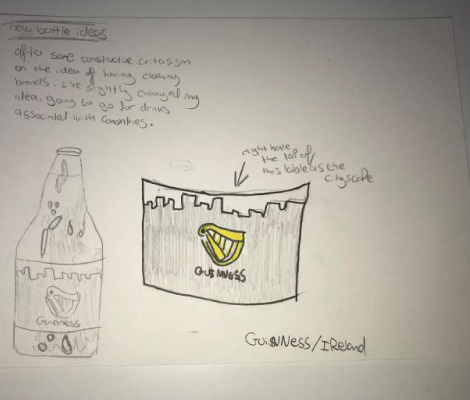 new bottle ideas
after some constructive critassm
on the idea of having clothing
brands. I've slightly changed my
idea. going to go for drinks
associated with Countries.
might have
the top of
this lable as the
cityscape
GUINNESS
Guinness
GUiNNess/IReland